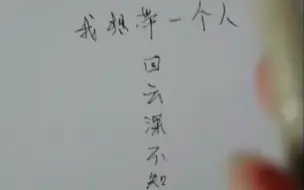 我想带一个人
回云深不知